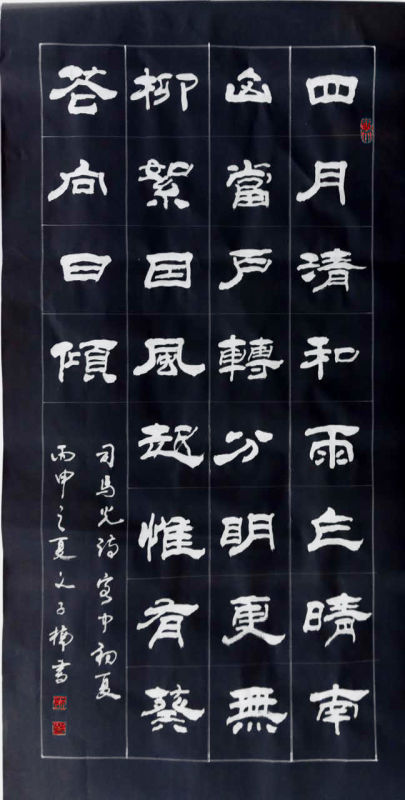 四月清和雨乍晴南
山當户轉分明更無
柳絮因風起惟有葵
花向日傾
司馬光詩 客中初夏
丙申之夏 文子楠書